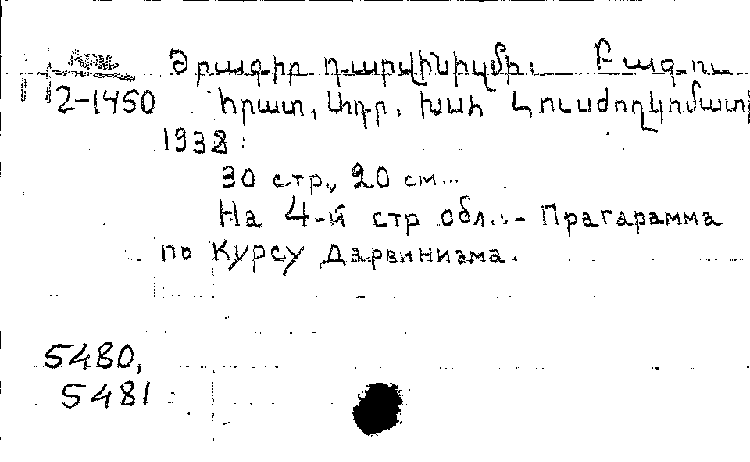 Ծրագիր դարվինիզմի. Բագու
2-1450 հրատ, Ադր. խսհ Լուսժողկոմատի
1938:
30 стр., 20 см...
На 4-й стр обл.:- Прагарамма
по Курсу Дарвинизма.
5480,
5481